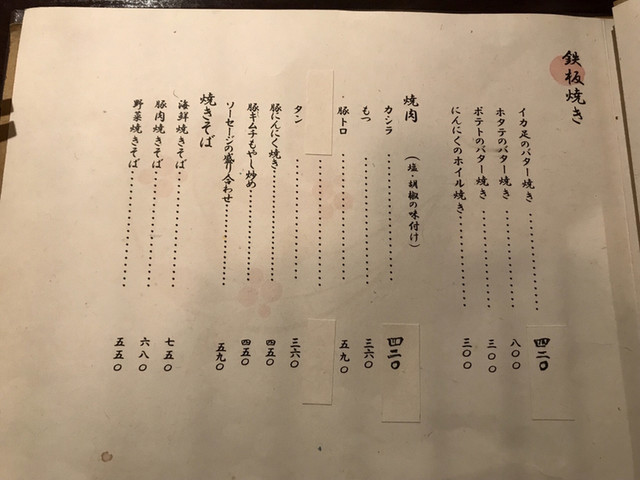 鉄板焼き
イカ足のバター焼き……………四二〇
ホタテのバター焼き……………八〇〇
ポテトのバター焼き……………三〇〇
にんにくのホイル焼き……………三〇〇
焼肉 (塩・胡椒の味付け)
カシラ……………四二〇
もつ……………三六〇
豚トロ……………五九〇
タン……………三六〇
豚にんにく焼き……………四五〇
豚キムチもやし炒め……………四五〇
ソーセージの盛り合わせ……………五九〇
焼きそば
海鮮焼きそば……………七五〇
豚肉焼きそば……………六八〇
野菜焼きそば……………五五〇